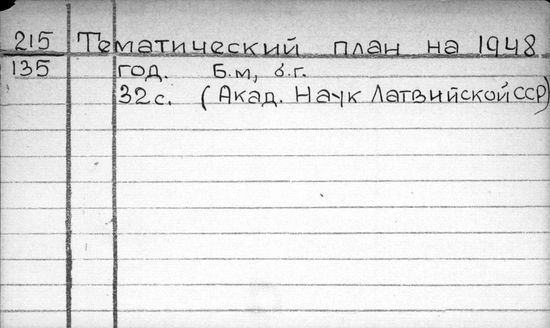 215 Тематический план на 1948
135 год. Б.м, б.г.
32с. (Акад. Наук Латвийской ССР)